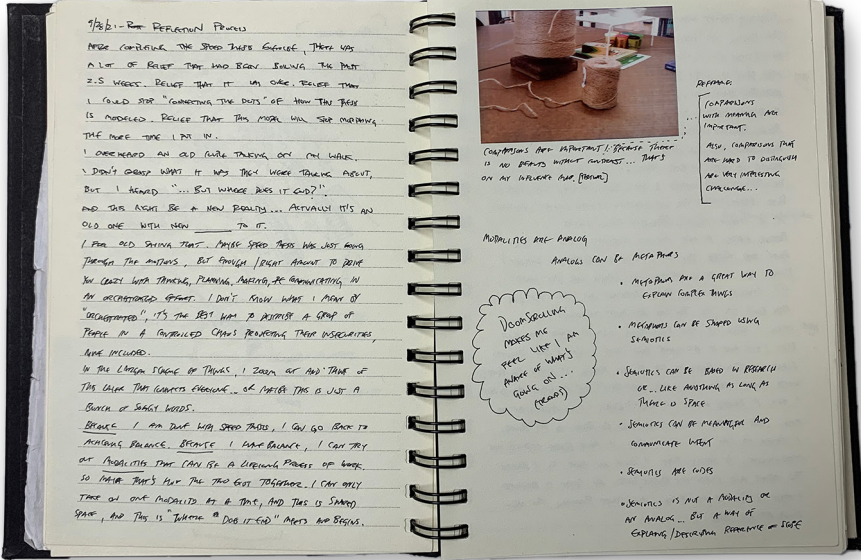 9/28/21 - REFLECTION PROCESS
AFTER COMPLETING THE SPEED THESIS EXERCISE, THERE WAS
A LOT OF RELIEF THAT HAD BEEN BOILING THE PAST
2.5 WEEKS. RELIEF THAT IT WAS OVER. RELIEF THAT
I COULD STOP "CONNECTING THE DOTS" OF HOW THIS THESIS
IS MODELED. RELIEF THAT THIS MODEL WILL STOP
THE MORE TIME I PUT IN.
I OVERHEARD AN OLD TALKING ON MY WALK.
I DIDN'T GRASP WHAT IT WAS THEY WERE TALKING ABOUT,
BUT I HEARD "... BUT WHERE DOES IT END?".
AND THIS MIGHT BE A NEW REALITY... ACTUALLY IT'S AN
OLD ONE WITH NEW ______ TO IT.
I FOR OLD SAYING THAT. MAYBE SPEED THESIS WAS JUST GOING
THROUGH THE MOTIONS, BUT ENOUGH/RIGHT AMOUNT TO DRIVE
YOU CRAZY WITH THINKING, PLANNING, MAKING, COMMUNICATING IN
AN ORCHESTRATED EFFORT. I DON'T KNOW WHAT I MEAN BY
"ORCHESTRATED", IT'S THE BEST WAY TO DESCRIBE A GROUP OF
PEOPLE IN A CONTROLLED CHAOS PROJECTING THEIR INSECURITIES,
MINE INCLUDED.
IN THE LARGER SCHEME OF THINGS, I ZOOM OUT AND THINK OF
THIS LAYER THAT CONNECTS EVERYONE... OR MAYBE THIS IS JUST A
BUNCH OF SOGGY WORDS.
BECAUSE I AM DONE WITH SPEED THESIS, I CAN GO BACK TO
ACHIEVING BALANCE. BECAUSE I HAVE BALANCE, I CAN TRY
OUT MODALITIES THAT CAN BE A LIFELONG PROCESS OF WORK.
SO MAYBE THAT'S HOW THE TWO EXIST TOGETHER. I CAN ONLY
TAKE ON ONE MODALITY AT A TIME, AND THIS IS SHARED
SPACE, AND THIS IS "WHERE DOES IT END" MEETS AND BEGINS.
COMPARISONS ARE IMPORTANT BECAUSE THERE
IS NO BEAUTY WITHOUT CONTRAST... THAT'S
ON MY INFLUENCE MAP.
REFRAME:
COMPARISONS
WITH MEANING ARE
IMPORTANT.
ALSO, COMPARISONS THAT
ARE HARD TO DISTINGUISH
ARE VERY INTERESTING
CHALLENGE...
MODALITIES ARE ANALOG
ANALOGS CAN BE METAPHORS
• METAPHORS ARE A GREAT WAY TO
EXPLAIN COMPLEX THINGS
• METAPHORS CAN BE SHAPED USING
SEMIOTICS
DOOMSCROLLING
MAKES ME
FEEL LIKE I AM
AWARE OF WHAT'S
GOING ON...
(TRENDS)
• SEMIOTICS CAN BE BASED IN RESEARCH
OR... LIKE ANYTHING AS LONG AS
THERE IS SPACE.
• SEMIOTICS CAN BE MEANINGFUL AND
COMMUNICATE INTENT
• SEMIOTICS ARE CODES
• SEMIOTICS IS NOT A MODALITY OR
AN ANALOG... BUT A WAY OF
EXPLAING/DESCRIBING REFERENCE OF SCOPE